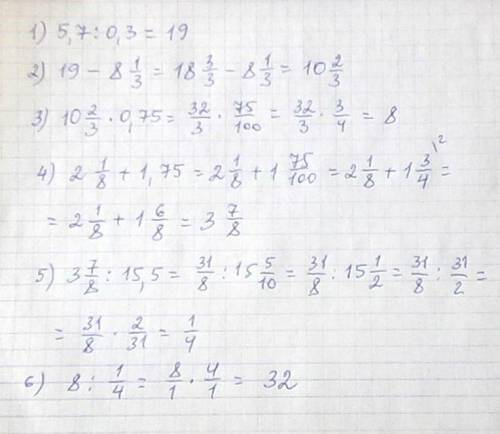 1) 5,7 : 0,3 = 19
2) 19 - 8 1/3 = 18 3/3 - 8 1/3 = 10 2/3
3) 10 2/3 · 0,75 = 32/3 · 75/100 = 32/3 · 3/4 = 8
4) 2 1/8 + 1,75 = 2 1/8 + 1 75/100 = 2 1/8 + 1 3/4 \2 =
= 2 1/8 + 1 6/8 = 3 7/8
5) 3 7/8 : 15,5 = 31/8 : 15 5/10 = 31/8 : 15 1/2 = 31/8 : 31/2 =
= 31/8 · 2/31 = 1/4
6) 8 : 1/4 = 8/1 · 4/1 = 32